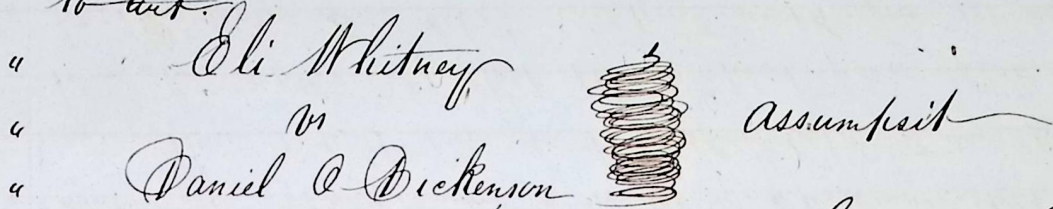 to wit.
" Eli Whitney
" vs Assumpsit
" Daniel O Dickenson